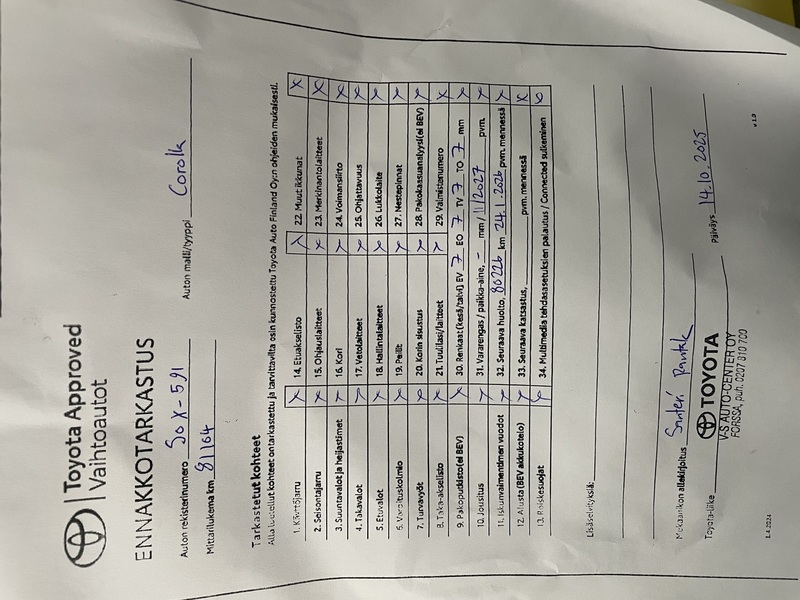 Toyota Approved
Vaihtoautot
ENNAKKOTARKASTUS
Auton rekisterinumero SOX-591 Auton malli/tyyppi Corolla
Mittarilukema km 81164
Tarkastetut kohteet
Alla luetellut kohteet on tarkastettu ja tarvittavilta osin kunnostettu Toyota Auto Finland Oy:n ohjeiden mukaisesti.
1. Käyttöjarru x 14. Etuakselisto x 22. Muut ikkunat x
2. Seisontajarru x 15. Ohjauslaitteet x 23. Merkinantolaitteet x
3. Suuntavalot ja heijastimet x 16. Kori x 24. Voimansiirto x
4. Takavalot x 17. Vetolaitteet x 25. Ohjattavuus x
5. Etuvalot x 18. Hallintalaitteet x 26. Lukkolaite x
6. Varoituskolmio x 19. Peilit x 27. Nestepinnat x
7. Turvavyöt x 20. Korin sisustus x 28. Pakokaasuanalyysi (ei BEV) x
8. Taka-akselisto x 21. Tuulilasi/laitteet x 29. Valmistenumero x
9. Pakoputkisto (ei BEV) x 30. Renkaat (kesä/talvi) EV 7 EO 7 TV 7 TO 7 mm x
10. Jousitus x 31. Vararengas / paikka-aine, - mm / 11/2027 pvm. x
11. Iskunvaimentimen vuodot x 32. Seuraava huolto, 80226 km 24.1.2026 pvm. mennessä x
12. Alusta (BEV akkukotelo) x 33. Seuraava katsastus, pvm. mennessä x
13. Roiskesuojat 34. Multimedia tehdasasetuksien palautus / Connected sulkeminen
Lisäselvityksiä:
Mekaanikon allekirjoitus Santeri
Toyota-liike TOYOTA Päiväys 14.10.2025
V-S AUTO-CENTER OY
FORSSA, puh. 0207 310 700
1.4.2021 v 1.9